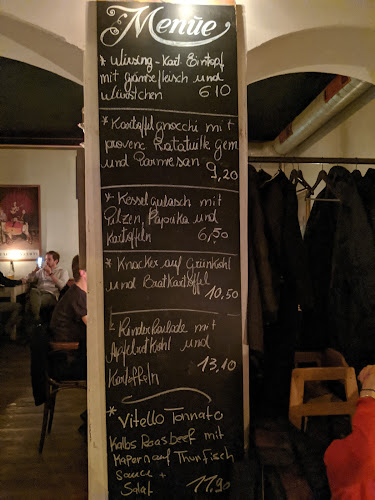 Menüe
* Wirsing-Kart Eintopf
mit gänsefleisch und
Würstchen 6,10
* Kartoffelgnocchi mit
provenc Ratatuille gem
und Parmesan
9,20
* Kesselgulasch mit
Pilzen, Paprika und
Kartoffeln 6,50
* Knacker auf Grünkohl
und Bratkartoffel
10,50
* Rinderroulade mit
Apfelrotkohl und
13,10
Kartoffeln
* Vitello Tonnato
Kalbs Roasbeef mit
Kapern auf Thunfisch
Sauce +
Salat 11,90